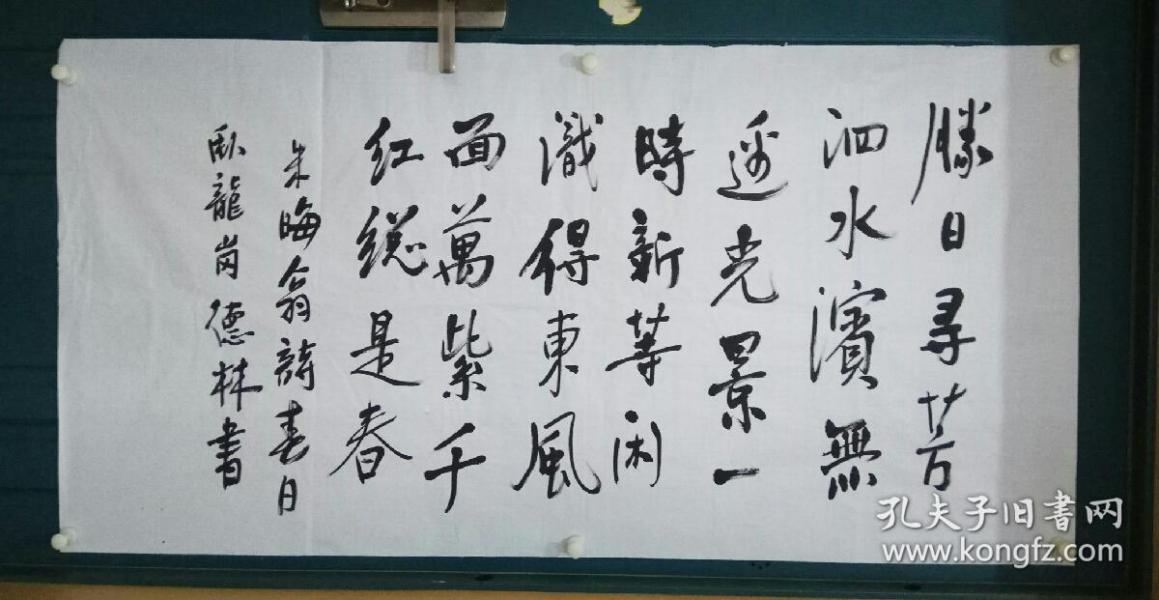 勝日尋芳
泗水濱無
邊光景一
時新等闲
識得東風
面萬紫千
红総是春
朱晦翁詩春日
卧龍岗德林書
孔夫子旧書网
www.kongfz.com